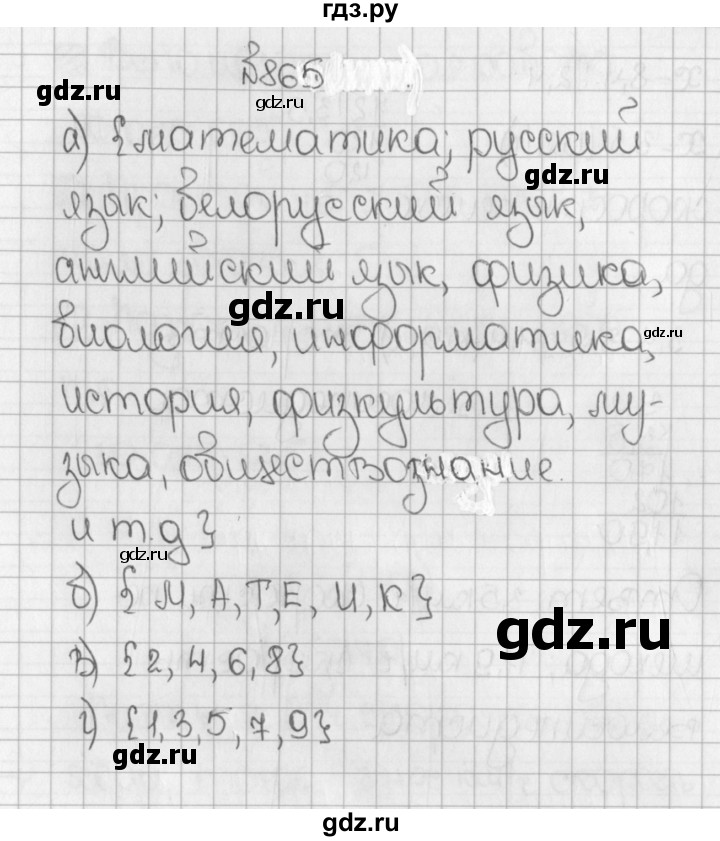 гдз.ру
№865
gdz.ru
gdz.ru
а) {математика; русский
gdz.ru
язык; белорусский язык,
английский язык, физика,
gdz.ru
биология, информатика,
gdz.ru
история, физкультура, му-
зыка, обществознание.
и т.д}
gdz.ru
б) {М, А, Т, Е, И, К}
gdz.ru
в) {2, 4, 6, 8}
г) {1, 3, 5, 7, 9}
gdz.ru
gdz.ru